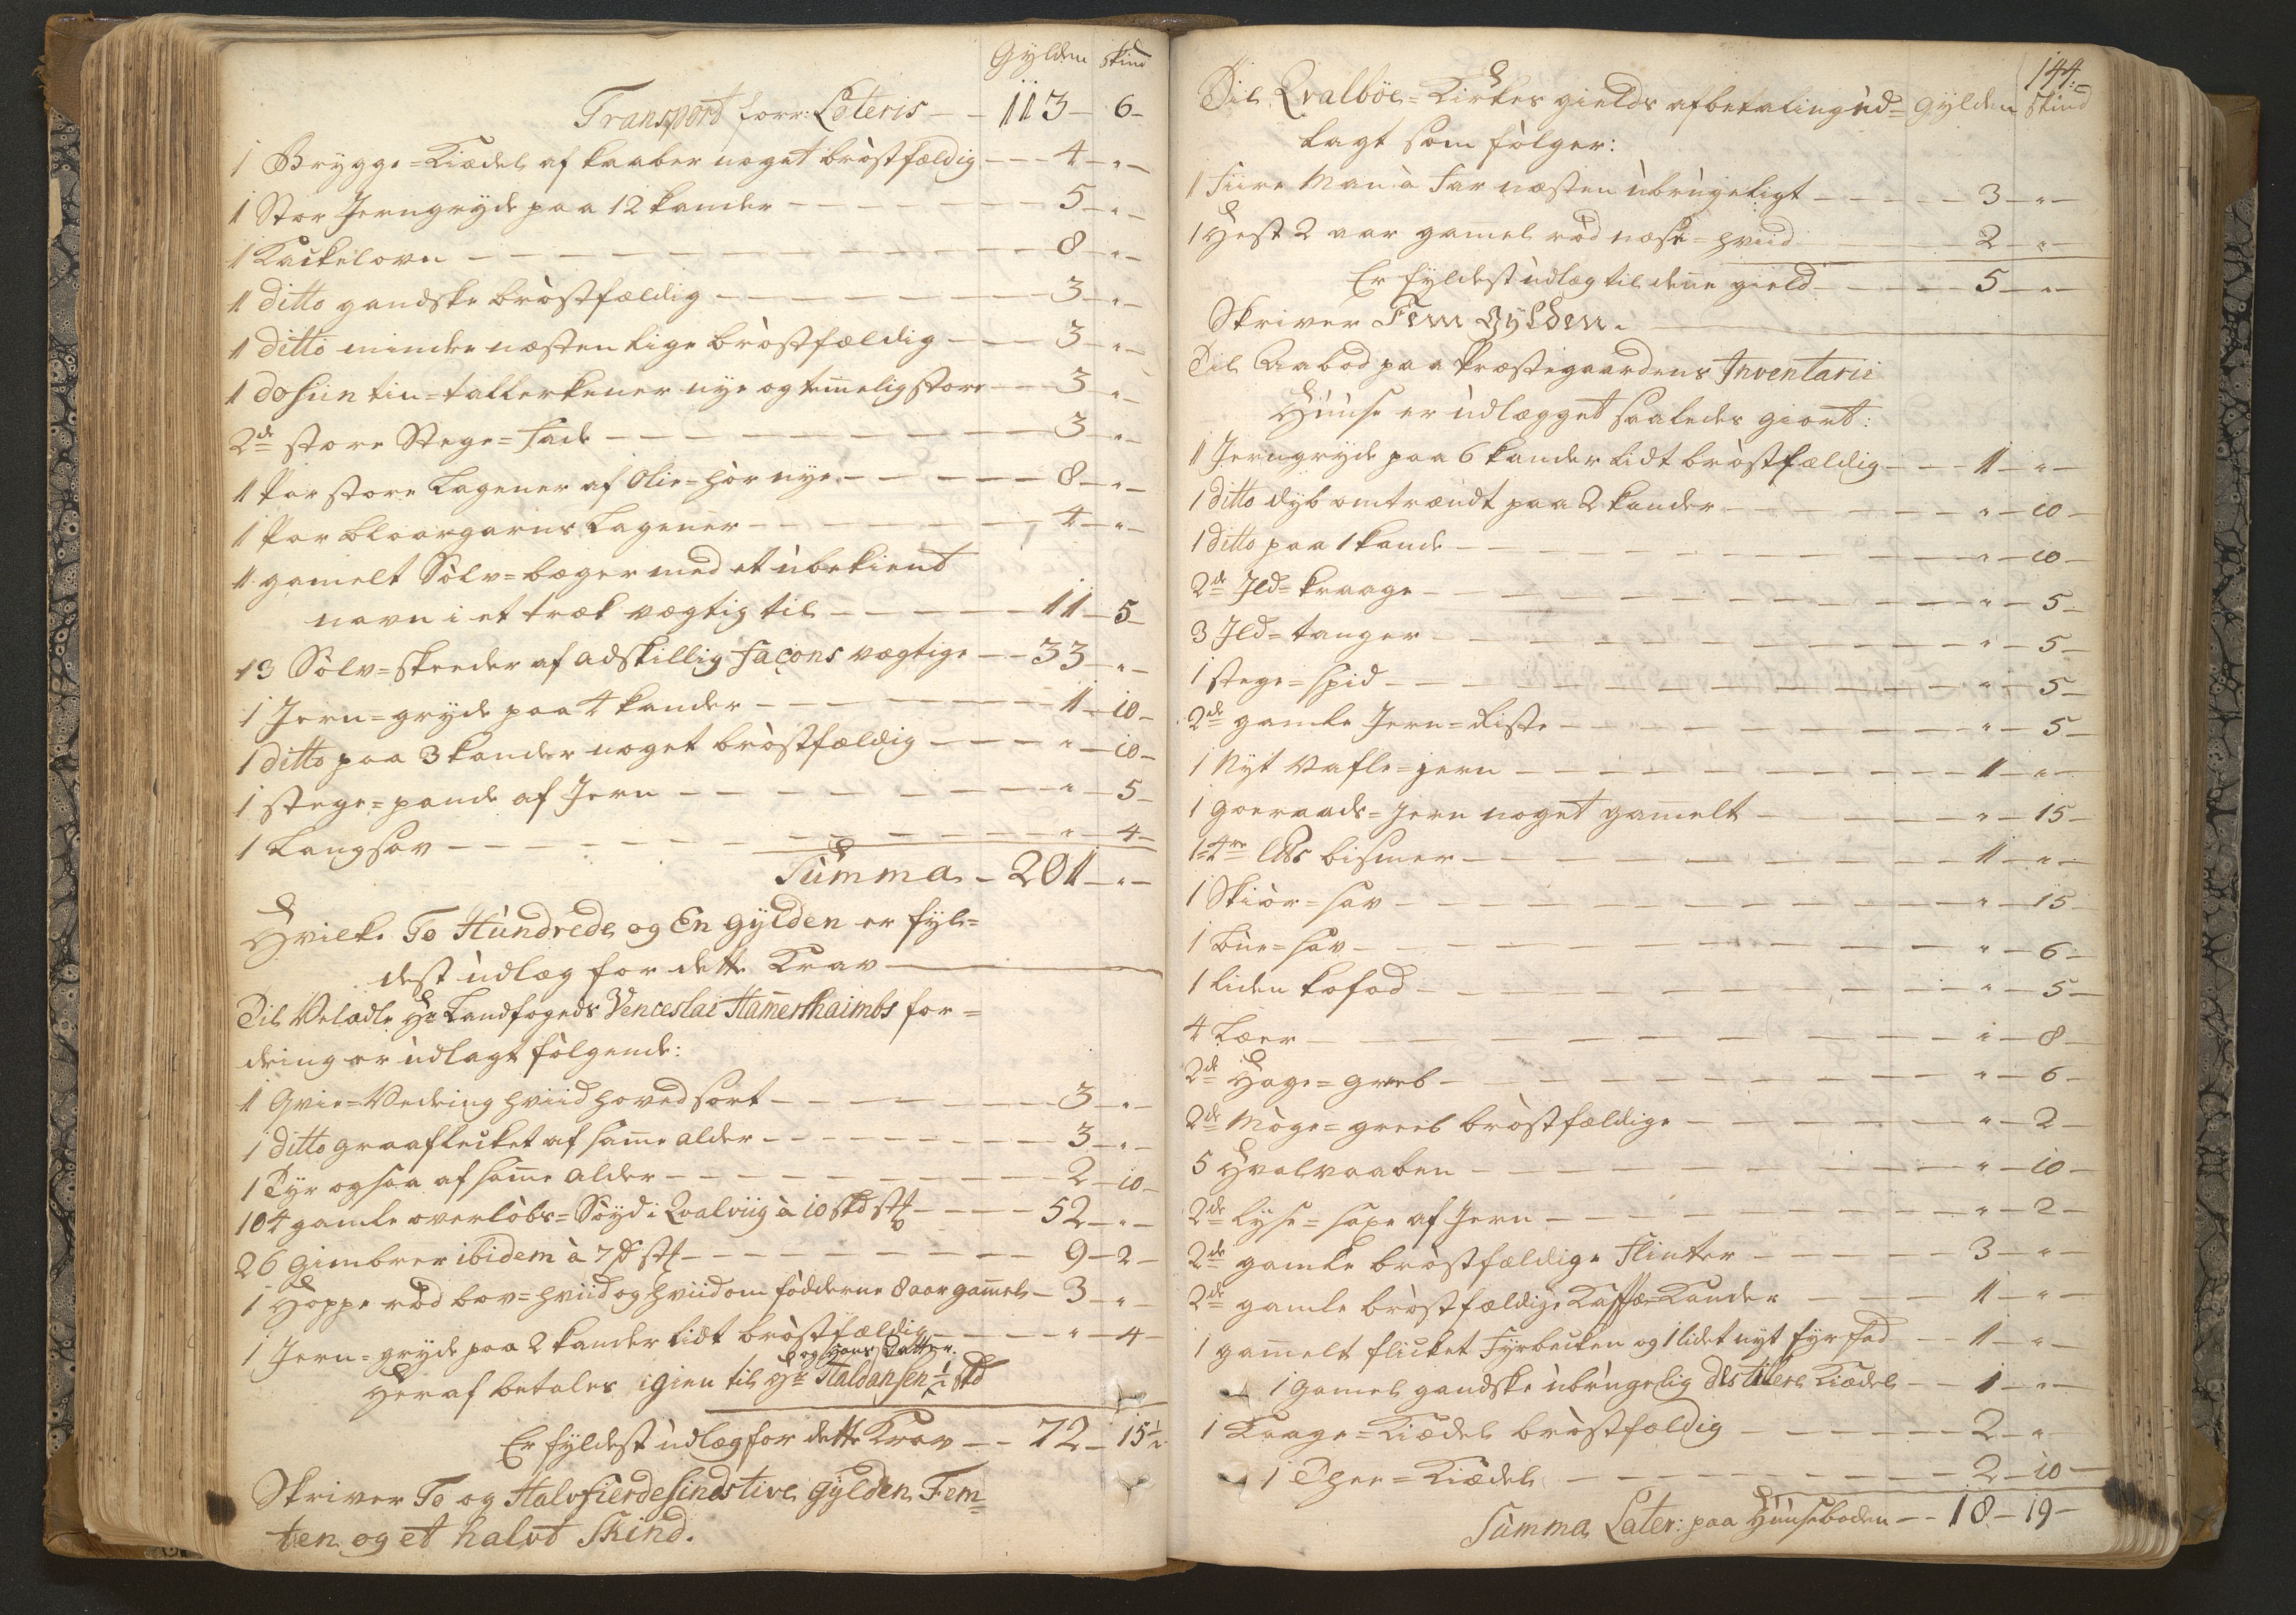 Gylden skind
Transport forr: Lateris — — 113 — 6 —
1 Brygge=Kiedel af kaaber noget bröstfældig — — — 4 — " —
1 Stor Jerngryde paa 12 kander — — — 5 — " —
1 Kackelovn — — — 8 — " —
1 ditto gandske bröstfældig — — — 3 — " —
1 ditto mindre næsten lige bröstfældig — — — 3 — " —
1 dosiin tin=tallerkener nye og temelig store — — 3 — " —
2de store Stege=Fade — — — 3 — " —
1 Par store Lagener af Olie=hör nye — — — 8 — " —
1 Par blaargarns Lagener — — — 4 — " —
1 gamelt Sölv=bæger med et ùbekiendt
navn i et træk vægtig til — — — 11 — 5 —
13 Sölv=skeeder af adskillig Façons vægtige — — 33 — " —
1 Jern=gryde paa 4 kander — — — 1 — 10 —
1 ditto paa 3 kander noget bröstfældig — — — " — 10 —
1 stege=pande af Jern — — — " — 5 —
1 Langsav — — — " — 4 —
Sùmma — 201 — " —
Hvilke To Hùndrede og En Gylden er fyl=
dest ùdlæg for dette Krav —
Til Velædle Hr Landfogeds Venceslai Hamershaimbs for=
dring er ùdlagt fölgende:
1 Qvie=Vedring hviid hoved sort — — — 3 — " —
1 ditto graaflecket af same alder — — — 3 — " —
1 Tyr ogsaa af same alder — — — 2 — 10 —
104 gamle overlöbs=Söyd i Qvalviig à 10 skd st — — — 52 — " —
26 Gimbrer ibidem à 7 st — — — 9 — 2 —
1 Hoppe röd bov=hviid og hviid om födderne 8 aar gamel — 3 — " —
1 Jern=gryde paa 2 kander lidt bröstfældig — — — " — 4 —
og Hans Datter
Heraf betales igien til Hr Haldansen ½ skd
Er fyldest ùdlæg for dette Krav — — 72 — 15½
Skriver To og Halvfierdesindstive Gylden, Fem=
ten og et halvt Skind.
144.
Til Qvalböe=Kirkes gields afbetaling ùd= Gylden skind
lagt som fölger:
1 Fiire Man à Far næsten ùbrùgeligt — — — 3 — " —
1 Hest 2 aar gamel röd næse=hviid — 2 — " —
Er fyldest ùdlæg til dene gield — — — 5 — " —
Skriver Fem Gylden. —
Til Aabod paa Præstegaardens Inventarii
Hùùse er ùdlægget saaledes giort:
1 Jerngryde paa 6 kander lidt bröstfældig — — — 1 — " —
1 ditto dyb omtrændt paa 2 kander — — — " — 10 —
1 ditto paa 1 kande — — — " — 10 —
2de Jld=kraage — — — " — 5 —
3 Jld=tanger — — — " — 5 —
1 stege=spid — — — " — 5 —
2de gamle Jern=Riste — — — " — 5 —
1 Nyt Vafle=jern — — — 1 — " —
1 goeraads=Jern noget gamelt — — — " — 15 —
1 bismer — — — 1 — " —
1 Skiör=sav — — — " — 15 —
1 bùe=sav — — — " — 6 —
1 liden kofod — — — " — 5 —
4 Læer — — — " — 8 —
2de Hage=greeb — — — " — 6 —
2de Möge=greeb bröstfældige — — — " — 2 —
5 Hvalvaaben — — — " — 10 —
2de lyse=saxe af Jern — — — " — 2 —
2de gamle bröstfældige Flinter — — — 3 — " —
2de gamle bröstfældige Kaffee=Kander — — — 1 — " —
1 gamelt flicket Fyrbecken og 1 lidet nyt fyrfad — — 1 — " —
1 gamel gandske ùbrùgelig destilere Kiedel — — 1 — " —
1 Krage=Kiedel bröstfældig — — — 2 — "
1 Thee=Kiedel — — — 2 — 10 —
Sùmma Later: paa Hùùseboden — — 18 — 19 —